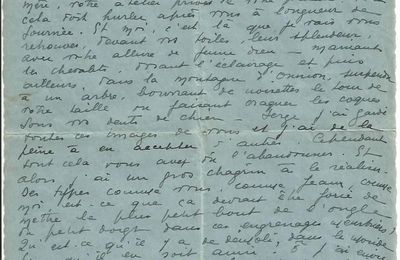 mère, votre atelier privé de
cela doit hurler, après vous à longueur de
journée. Et moi, c'est là que je vais vous
retrouver, devant vos toiles leur splendeur,
avec votre allure de jeune dieu - maniant
le chevalet, dosant l'éclairage et puis
ailleurs, dans la montagne d'Onnion, suspendu
à un arbre, bourrant de noisettes le tour de
votre taille ou faisant craquer les coques
sous vos dents de chien. Serge j'ai gardé
toutes ces images de vous et j'ai de la
peine à en accepter d'autres. Cependant
tout cela vous avez dû l'abandonner. Et
alors j'ai un gros chagrin à le réaliser.
Des types comme vous, comme Jeam, comme
moi est-ce que ça devrait être forcé de
mettre la plus petit bout de l'ongle
du petit doigt dans ces engrenages
Qu'est-ce qu'il y a de dans le monde
qu'il en soit ainsi. J'ai encore